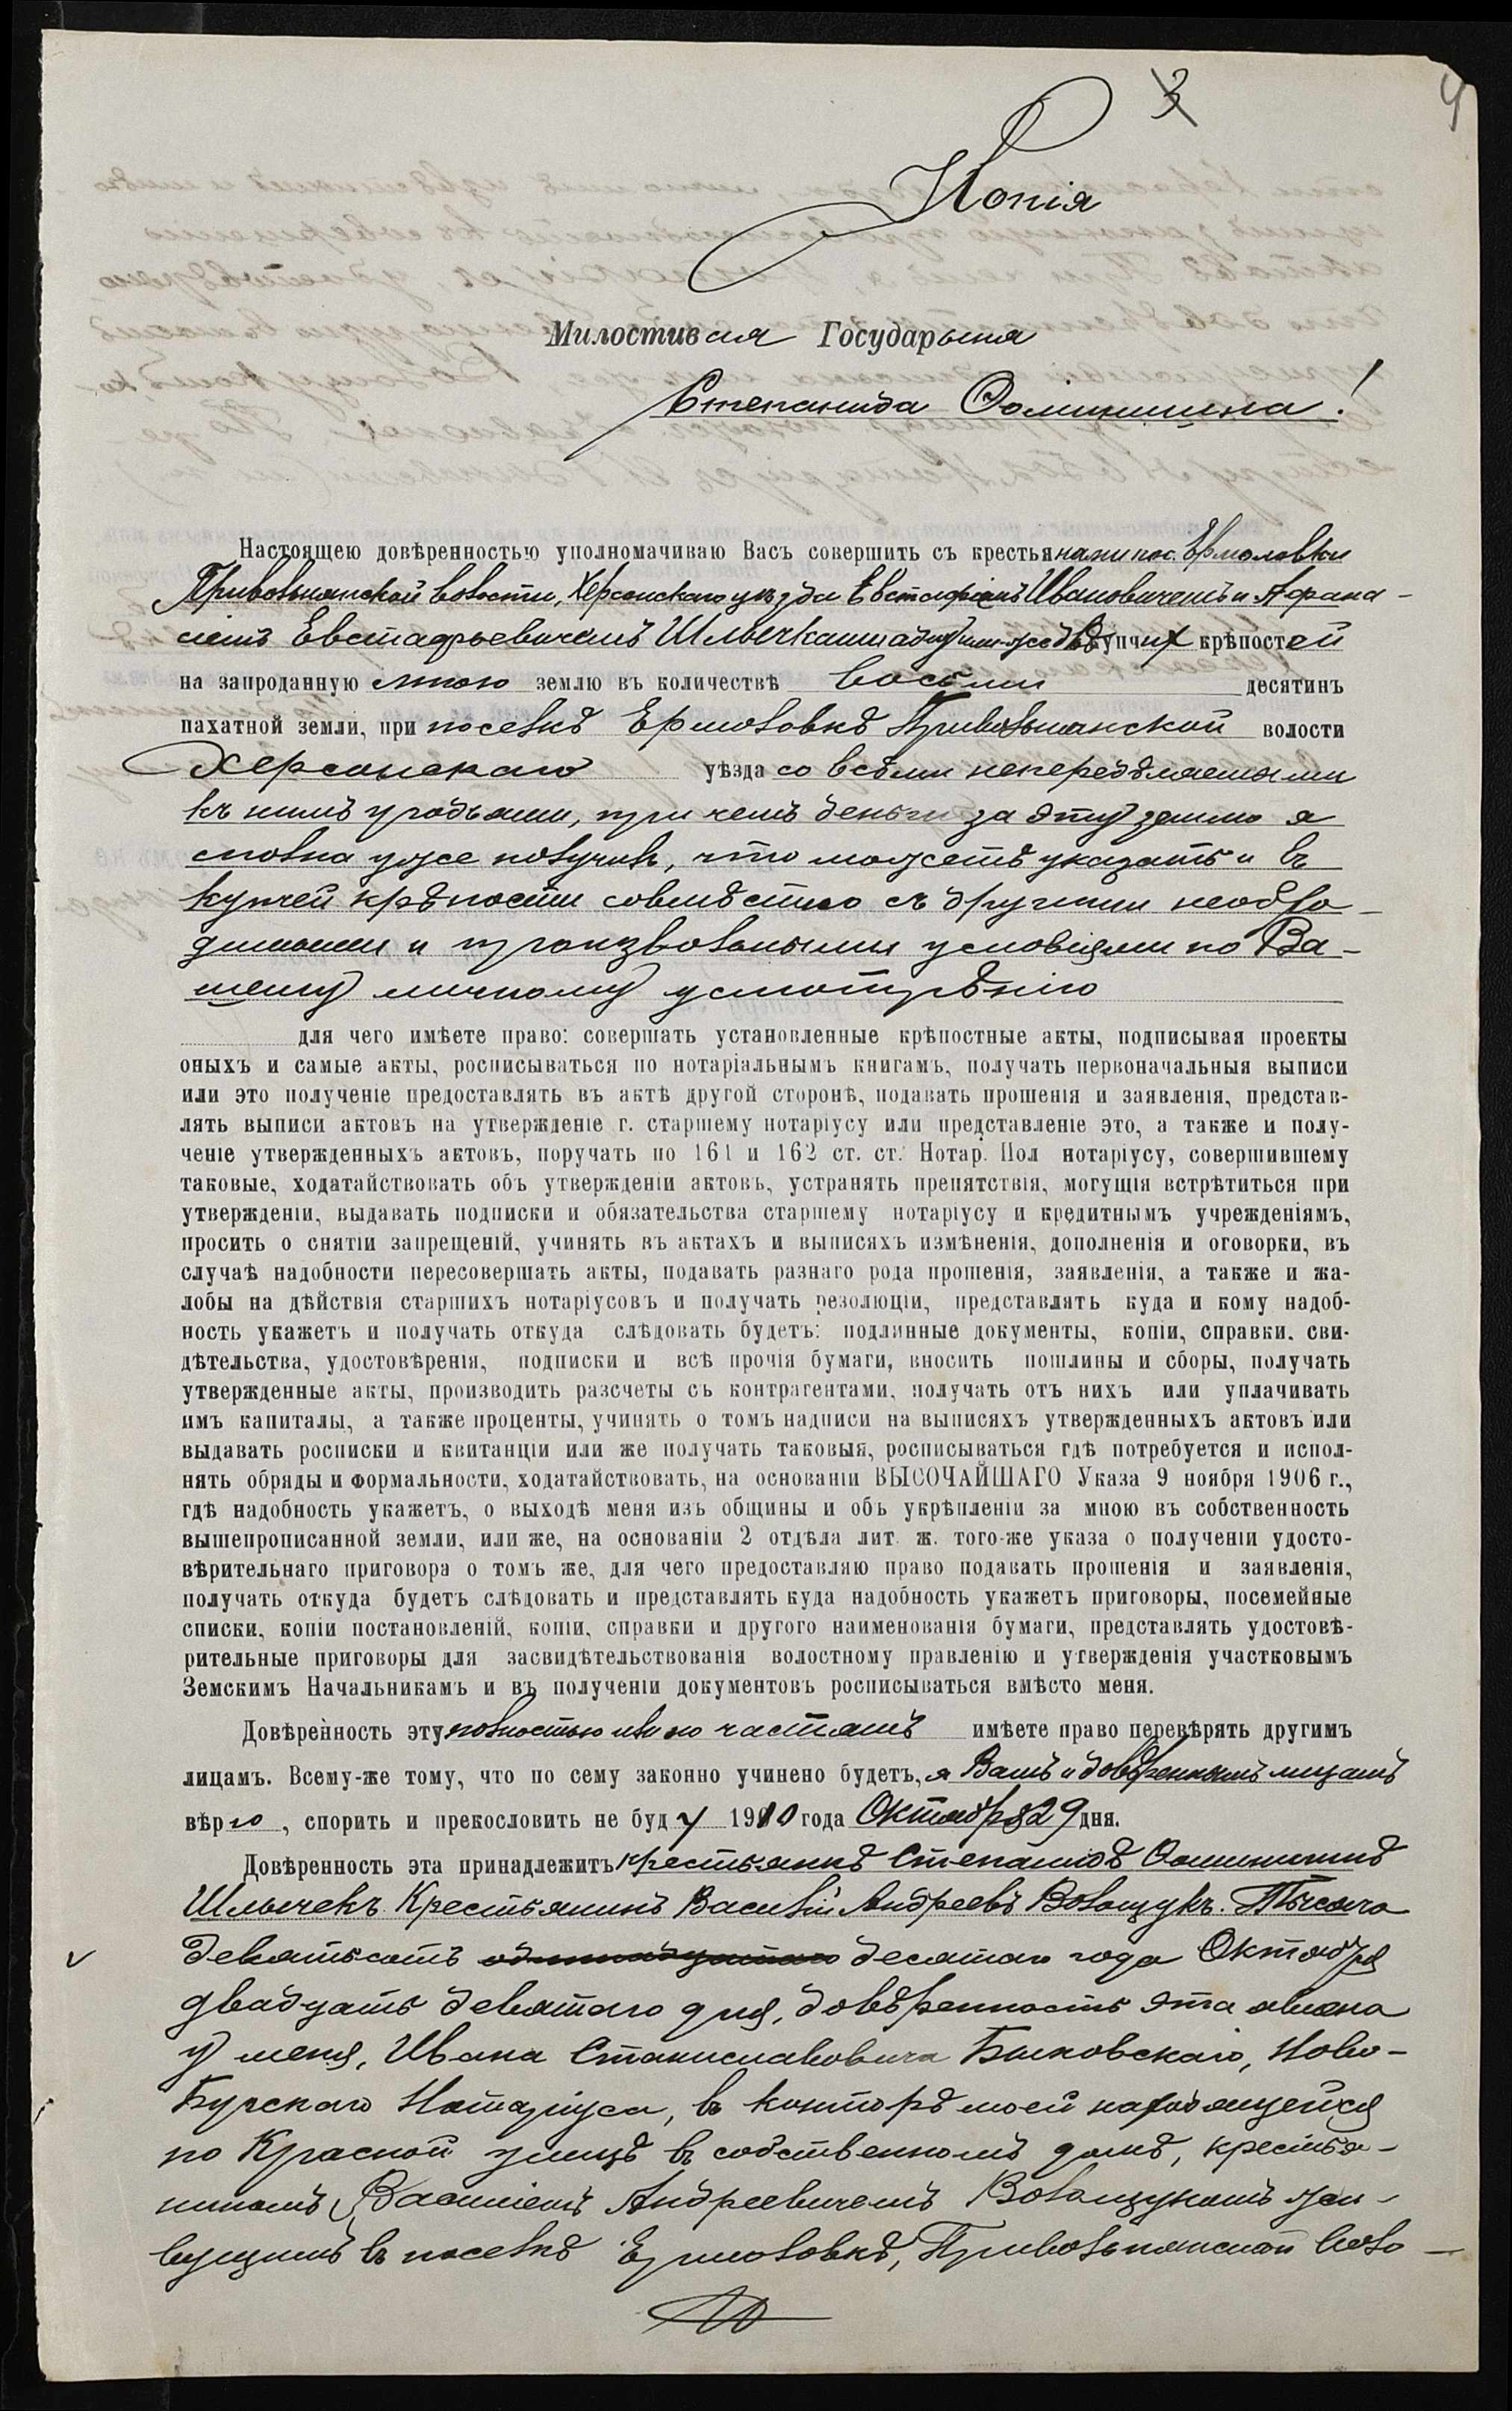 3
4
Копія
Милостивая Государыня
Степанида Фоминишна!
Настоящею довѣренностью уполномачиваю Васъ совершить съ крестьянами пос. Ермоловки
Привольнянской волости, Херсонскаго уѣзда Евстафіемъ Ивановичемъ и Афана-
сіемъ Евстафьевичемъ Шлычками одну или же двѣ купчих крѣпостей
на запроданную мною землю въ количествѣ восьми десятинъ
пахатной земли, при поселкѣ Ермоловкѣ Привольнянской волости
Херсонскаго уѣзда со всѣми непередѣляемыми
къ нимъ угодьями, при чемъ деньги за эту землю я
сполна уже получилъ, что можетъ указать и въ
купчей крѣпости совмѣстно съ другими необхо-
димыми и произвольными условіями по Ва-
шему личному усмотрѣнію
для чего имѣете право: совершать установленные крѣпостные акты, подписывая проекты
оныхъ и самые акты, росписываться по нотаріальнымъ книгамъ, получать первоначальныя выписи
или это полученіе предоставлять въ актѣ другой сторонѣ, подавать прошенія и заявленія, представ-
лять выписи актовъ на утвержденіе г. старшему нотаріусу или представленіе это, а также и полу-
ченіе утвержденныхъ актовъ, поручать по 161 и 162 ст. ст. Нотар. Пол нотаріусу, совершившему
таковые, ходатайствовать объ утвержденіи актовъ, устранять препятствія, могущія встрѣтиться при
утвержденіи, выдавать подписки и обязательства старшему нотаріусу и кредитнымъ учрежденіямъ,
просить о снятіи запрещеній, учинять въ актахъ и выписяхъ измѣненія, дополненія и оговорки, въ
случаѣ надобности пересовершать акты, подавать разнаго рода прошенія, заявленія, а также и жа-
лобы на дѣйствія старшихъ нотаріусовъ и получать резолюціи, представлять куда и кому надоб-
ность укажетъ и получать откуда слѣдовать будетъ: подлинные документы, копіи, справки. сви-
дѣтельства, удостовѣренія, подписки и всѣ прочія бумаги, вносить пошлины и сборы, получать
утвержденные акты, производить разсчеты съ контрагентами, получать отъ нихъ или уплачивать
имъ капиталы, а также проценты, учинять о томъ надписи на выписяхъ утвержденныхъ актовъ или
выдавать росписки и квитанціи или же получать таковыя, росписываться гдѣ потребуется и испол-
нять обряды и формальности, ходатайствовать, на основаніи ВЫСОЧАЙШАГО Указа 9 ноября 1906 г.,
гдѣ надобность укажетъ, о выходѣ меня изъ общины и объ укрѣпленіи за мною въ собственность
вышепрописанной земли, или же, на основаніи 2 отдѣла лит. ж. того-же указа о полученіи удосто-
вѣрительнаго приговора о томъ же, для чего предоставляю право подавать прошенія и заявленія,
получать откуда будетъ слѣдовать и представлять куда надобность укажетъ приговоры, посемейные
списки, копіи постановленій, копіи, справки и другого наименованія бумаги, представлять удостовѣ-
рительные приговоры для засвидѣтельствованія волостному правленію и утвержденія участковымъ
Земскимъ Начальникамъ и въ полученіи документовъ росписываться вмѣсто меня.
Довѣренность эту полностью или по частямъ имѣете право перевѣрять другимъ
лицамъ. Всему-же тому, что по сему законно учинено будетъ, я Вамъ и довѣреннымъ лицамъ
вѣрю, спорить и прекословить не буду 1910 года Октября 29 дня.
Довѣренность эта принадлежитъ крестьянкѣ Степанидѣ Фоминишнѣ
Шлычекъ. Крестьянинъ Василій Андреевъ Волощукъ. Тысяча
девятьсотъ одиннадцатаго десятаго года Октября
двадцать девятаго дня, довѣренность эта явлена
у меня, Ивана Станиславовича Быковскаго, Ново-
Бугскаго Нотаріуса, въ конторѣ моей находящейся
по Красной улицѣ въ собственномъ домѣ, крестья-
ниномъ Василіемъ Андреевичемъ Волощукомъ жи-
вущимъ въ поселкѣ Ермоловкѣ, Привольнянской воло-